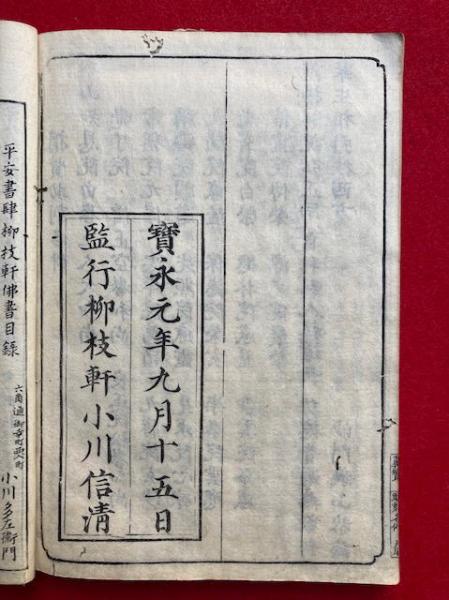 寶永元年九月十五日
監行柳枝軒小川信清
平安書肆柳枝軒佛書目錄
六角通御幸町西町
小川多左衞門